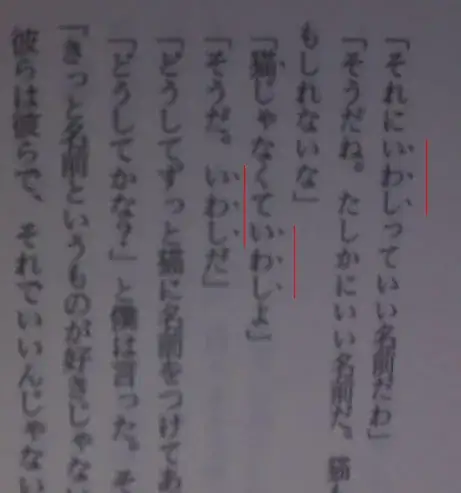 「それにいわしっていい名前だわ」
「そうだね。たしかにいい名前だ。猫
もしれないな」
「猫じゃなくていわしよ」
「そうだ。いわしだ」
「どうしてずっと猫に名前をつけてあ
「どうしてかな？」と僕は言った。そ
「きっと名前というものが好きじゃな
彼らは彼らで、それでいいんじゃない